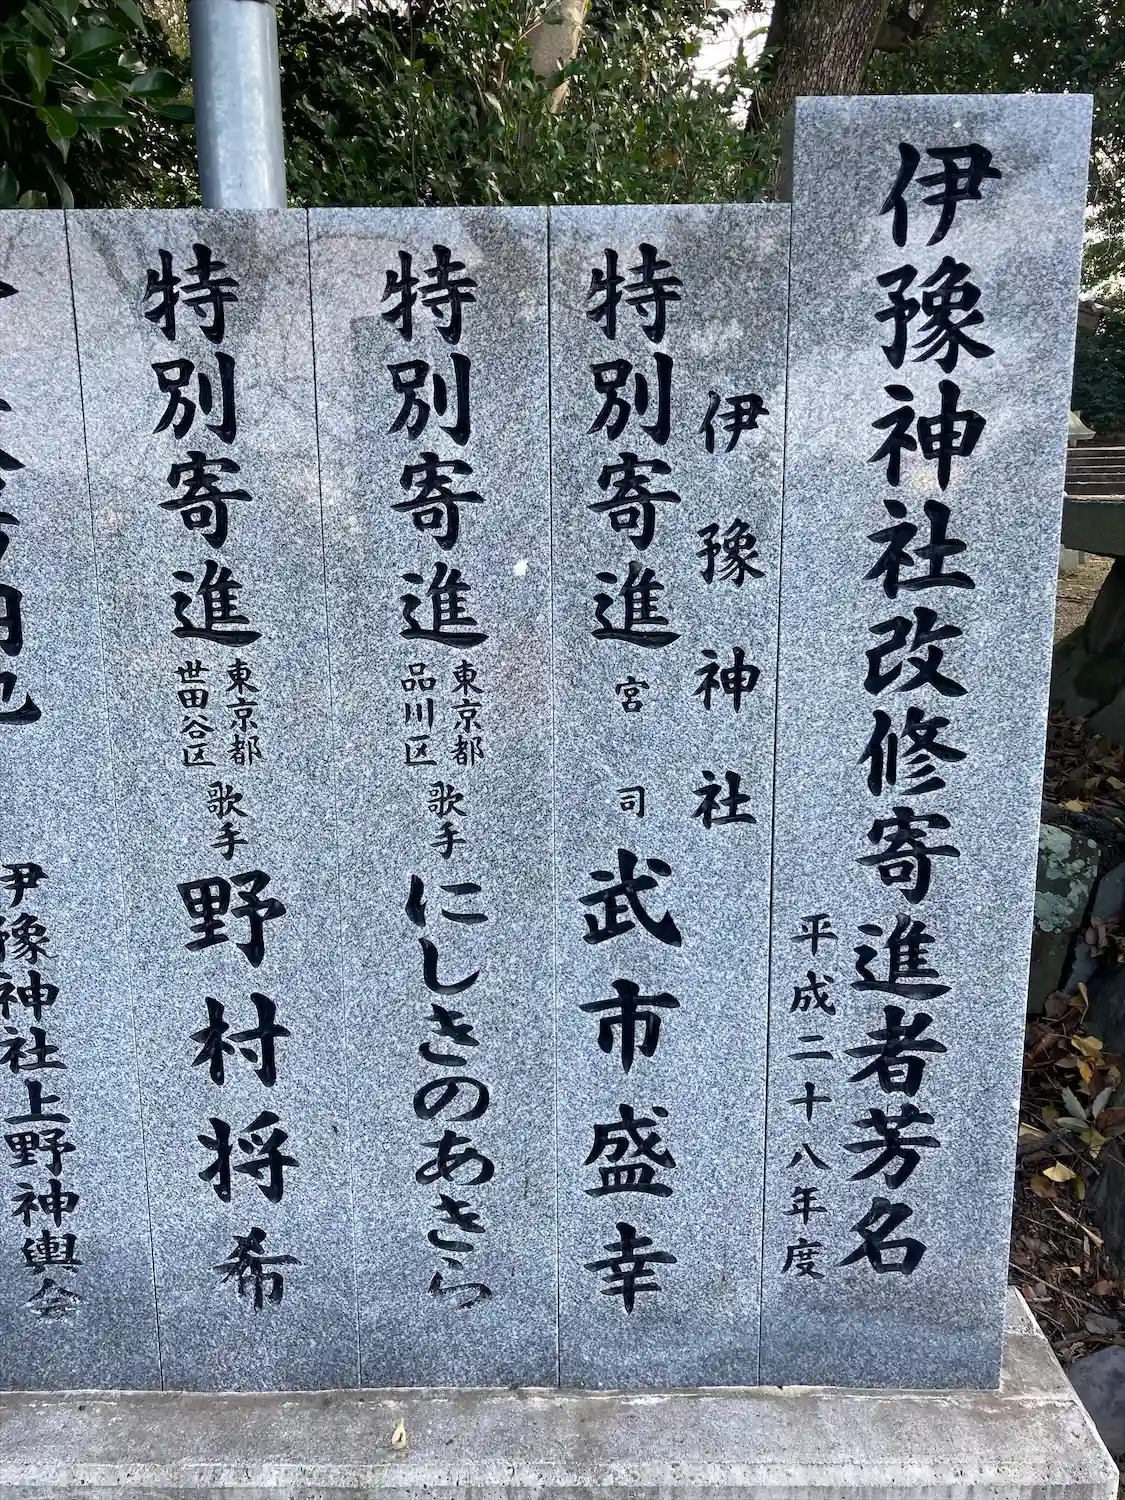 伊豫神社改修寄進者芳名
平成二十八年度
伊豫神社
特別寄進 宮司 武市盛幸
特別寄進 東京都
品川区 歌手 にしきのあきら
特別寄進 東京都
世田谷区 歌手 野村将希
伊豫神社上野神輿会